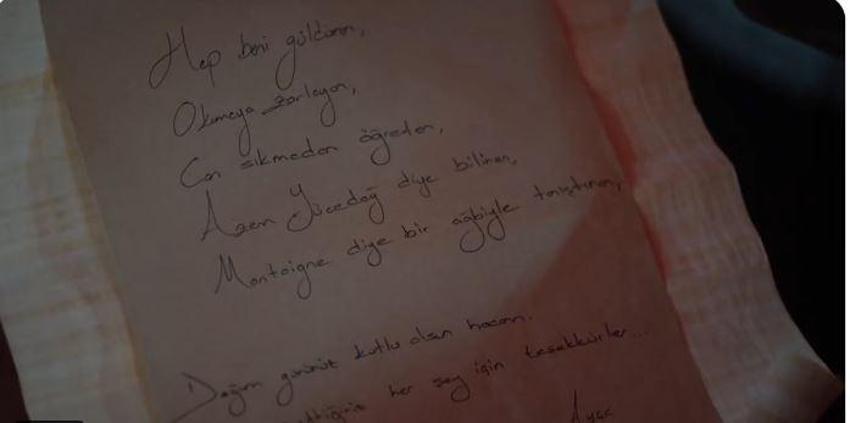 Hep beni güldüren,
Okumaya zorlayan,
Can sıkmeden öğreden,
Azem Yücedağ diye bilinen,
Montaigne diye bir ağbiyle tanıştıran,
Doğum gününüz kutlu olsun hocam.
her şey için teşekkürler...